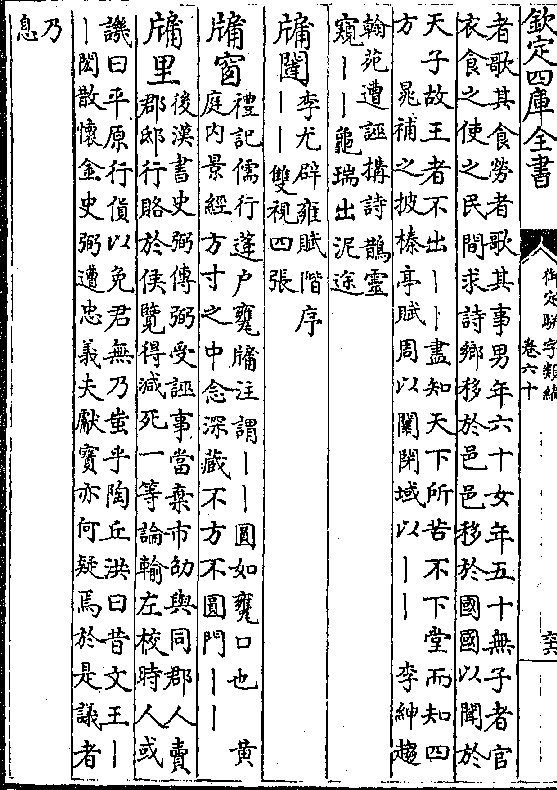 欽定四庫全書
御定駢字類編
卷六十
六六
者歌其食勞者歌其事男年六十女年五十無子者官
衣食之使之民間求詩鄉移於邑邑移於國國以聞於
天子故王者不出丨丨盡知天下所苦不下堂而知四
方 晁補之披榛亭賦周以闤閉域以丨丨 李紳趨
翰苑遭誣搆詩鵲靈
窺丨丨龜瑞出泥途
牖闥 李尤辟雍賦階序
丨丨雙視四張
牖窗 禮記儒行蓬户甕牖注謂丨丨圓如甕口也 黄
庭内景經方寸之中念深藏不方不圓門丨丨
牖里 後漢書史弼傳弼受誣事當棄市劭與同郡人賣
郡邸行賂於侯覽得減死一等論輸左校時人或
譏曰平原行貨以免君無乃蚩乎陶丘洪曰昔文王丨
丨閎散懷金史弼遭忠義夫獻寳亦何疑焉於是議者
乃
息